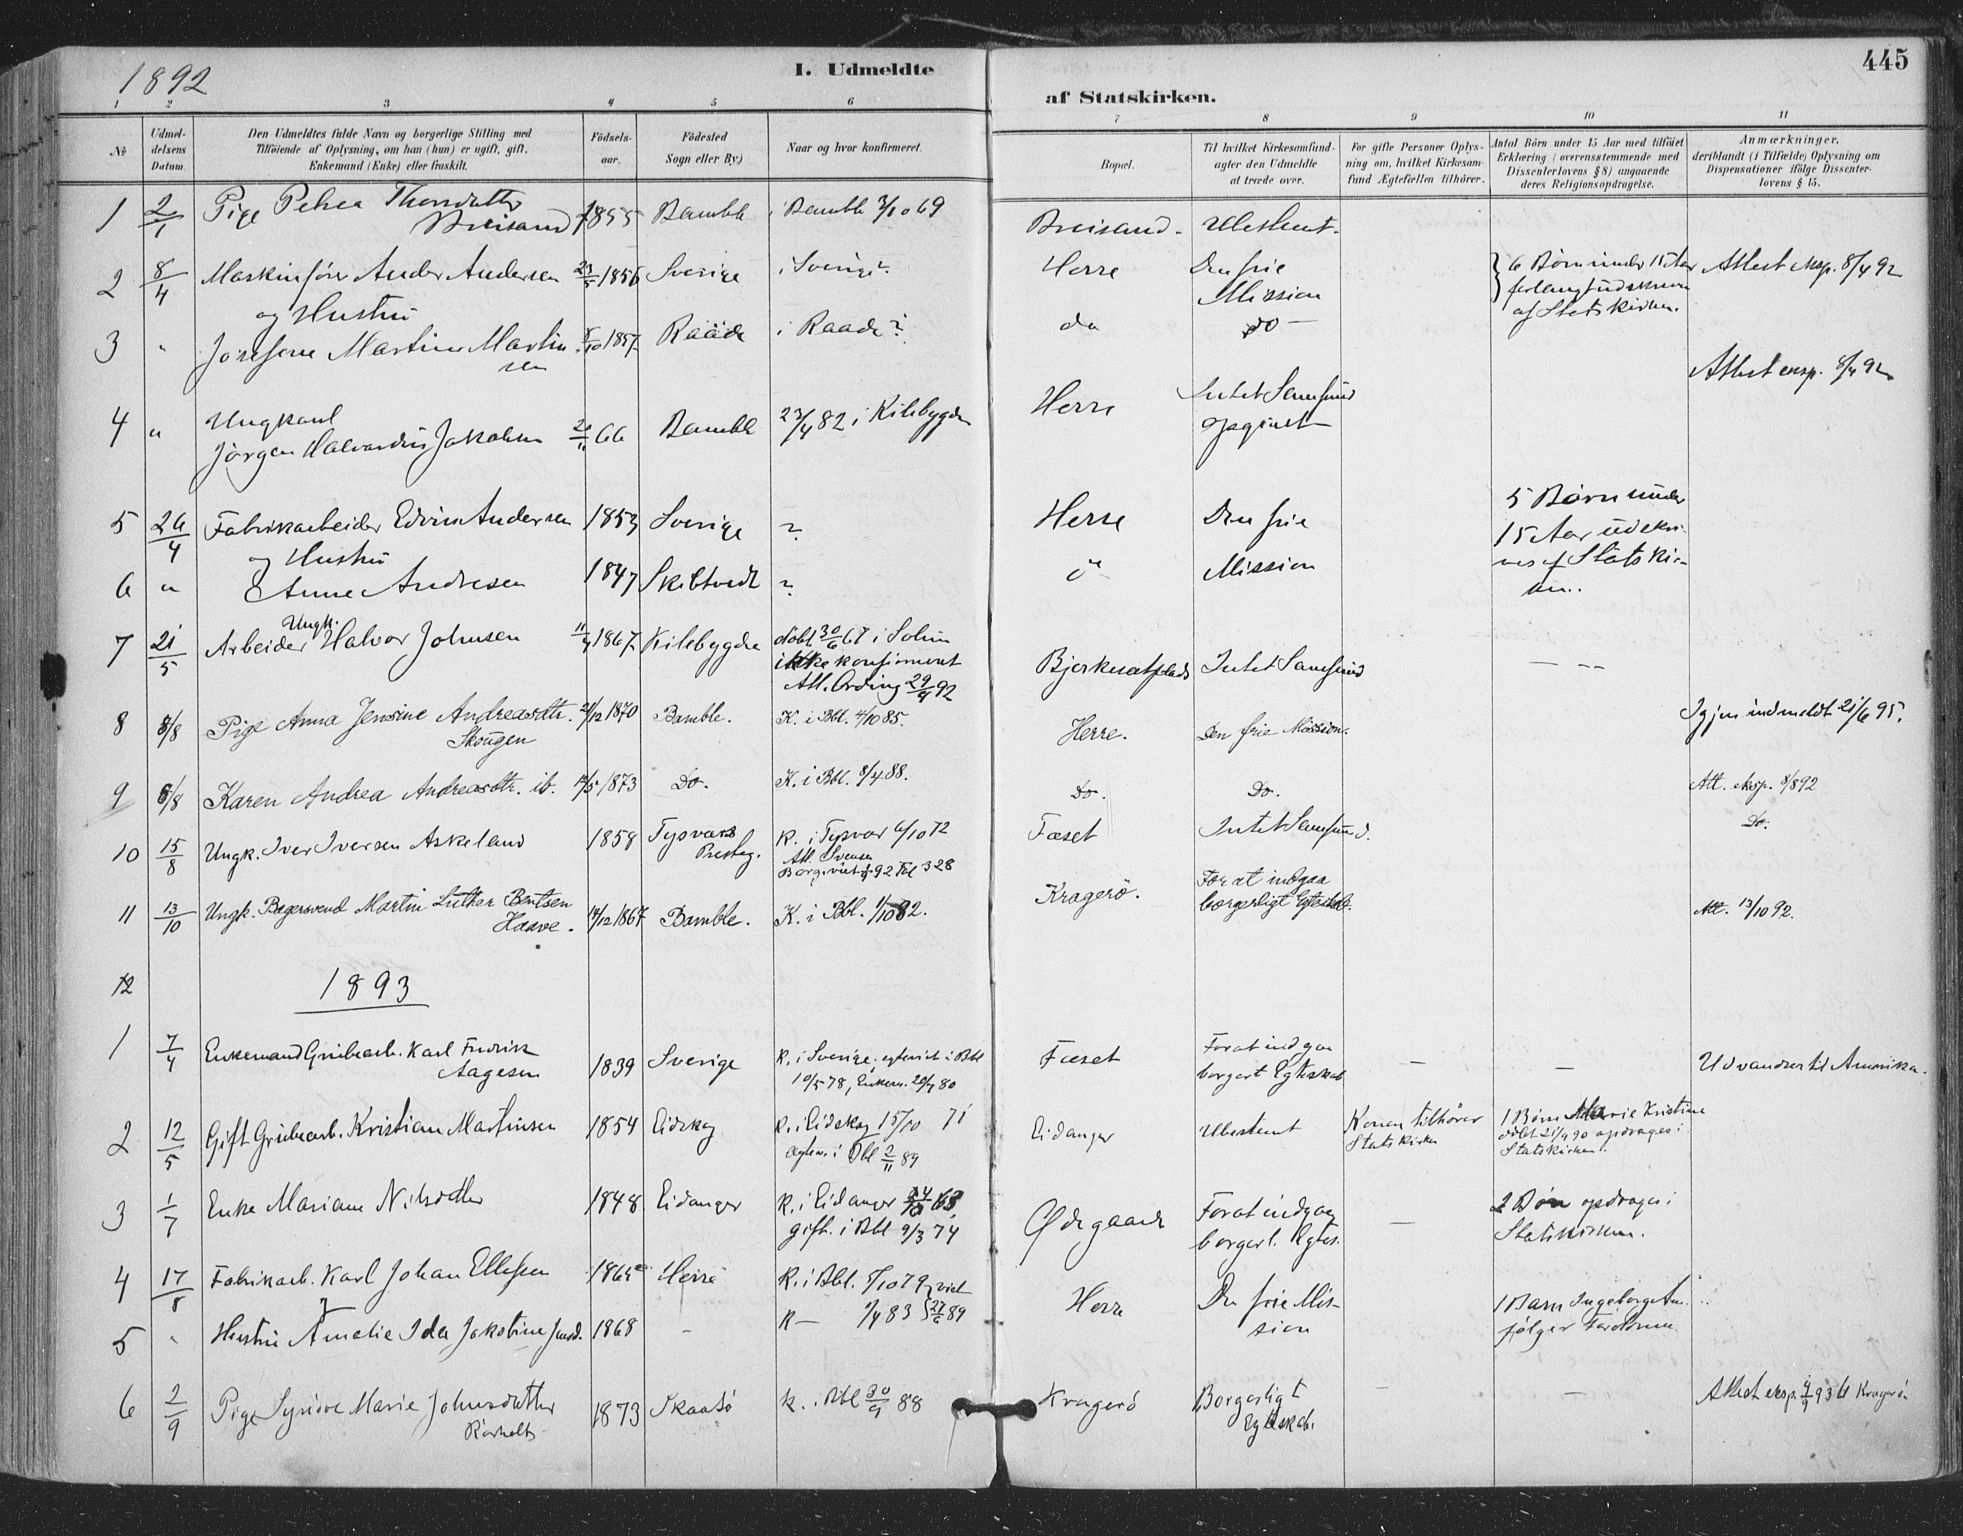 1892
I. Udmeldte
af Statskirken.
445
1 2 3 4 5 6 7 8 9 10 11
No
Udmeldelsens Datum.
Den Udmeldtes fulde Navn og borgerlige Stilling med
Tilföiende af Oplysning, om han (hun) er ugift, gift,
Enkemand (Enke) eller fraskilt.
Födselsaar.
Födested
Sogn eller By)
Naar og hvor konfirmeret.
Bopæl.
Til hvilket Kirkesamfund
agter den Udmeldte
at træde over.
For gifte Personer Oplysning om, hvilket Kirkesamfund Ægtefællen tilhörer.
Antal Börn under 15 Aar med tilföiet
Erklæring (overensstemmende med
Dissenterlovens § 8) angaaende
deres Religionsopdragelse.
Anmærkninger,
deriblandt (i Tilfælde) Oplysning om
Dispensationer ifölge Dissenterlovens § 15.
1 2/1 Pige Petrea Thorsdatter 1855 Bamble i Bamble 3/10 69 Breisand. Ubestemt.
Breisand
2 8/4 Maskinfører Andersen 1856 Sverige i Sverige Herre Den frie 6 Børn under 15 Aar Attest eksp. 8/4 92
og Hustru Mission
af Statskirken.
3 " Josefine Martin 1857 Raade i Raade? do do
sen
Attest eksp. 8/4 92
4 " Ungkarl Bamble 23/4 82 i Kilebygden Herre Intet Samfund
Jørgen Halvardus Jakobsen 66 opgivet
5 26/4 Fabrikarbeider Edvin Andersen 1853 Sverige ? Herre Den frie 5 Børn under
og Hustru 15 Aar udskri-
6 " Anne Andresen 1847 Skibtvedt ? Mission ves af Statskir-
ken.
7 21/5 Arbeider Ungk. Halvor Johnsen 1867 Kilebygden døbt 30/6 67 i Solum Bjerknatplads Intet Samfund — --
ikke konfirmeret
Att. Ording 29/4 92
8 8/8 Pige Anna Jensine Andreasdtr. 21/12 1870 Bamble. K. i Bbl. 4/10 85. Herre. Den frie Mission. Igjen indmeldt 21/6 95.
Skougen
9 8/8 Karen Andrea Andreasdtr. ib. 1873 Do. K. i Bbl. 8/4 88. Do. Do. Att. eksp. 8/8 92
10 15/8 Ungk. Iver Iversen Askeland 1858 Tysvær K. i Tysvær 6/10 72 Fæset Intet Samfund. Do.
Presteg. Att. Svensen
92 Fol 328
11 13/10 Ungk. Bagersvend Martin Luther Bentsen 14/12 1867 Bamble. K. i Bbl. 1/10 82. Kragerö. For at indgaa Att. 13/10 92.
Haave. borgerligt
12
1893
1 7/4 Enkemand Grubearb. Karl Fredrik 1839 Sverige K. i Sverige, egteviet i Bbl Fæset For at indgaa — — Udvandrer til Amerika.
Aagesen 10/5 78, Enkem. 20/4 80 borgerl Egteskab
2 12/5 Gift Grubearb. Kristian Martinsen 1854 Eidskog K. i Eidskog 15/10 71 Eidanger Ubestemt Konen tilhörer 1 Barn Marie Kristine
i Bbl 2/11 89 Statskirken døbt 21/9 90 opdrages i
Statskirken.
3 1/7 Enke Mariane Nilsdtter 1848 Eidanger K. i Eidanger 63. Ødegaard For at indgaa — 2 Børn opdrages i
gift. i Bbl 9/3 74 borgerl. Egtes. Statskirken.
4 17/8 Fabrikarb. Karl Johan Ellefsen Herre K. i Bbl. 5/10 79 viet Herre Den frie Mis- 1 Barn Ingeborg
5 " Hustru Amalie Ida Jakobine 1868 — K — 1/4 83 89 sion følger Forældrene.
6 2/9 Pige Synöve Marie Johnsdatter 1873 Skaatö K. i Bbl 30/9 88 Kragerö Borgerligt — Attest eksp. 4/9 93 til Kragerö
Rörholt Egteskab.